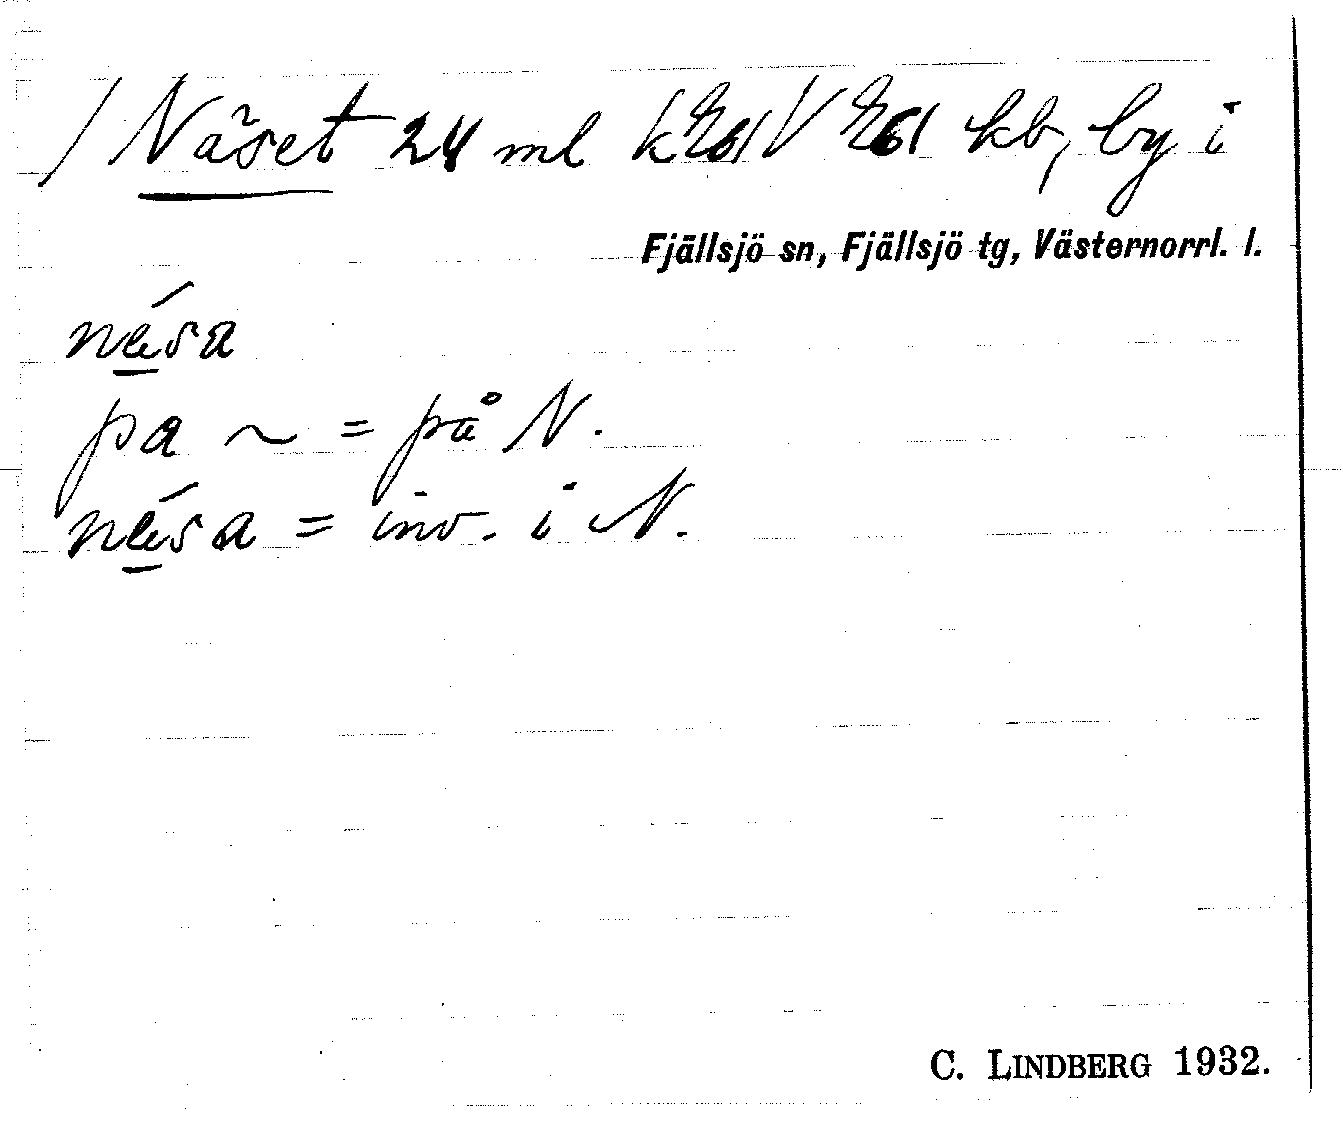 / Näset 24 ml k V kb, by i
Fjällsjö sn, Fjällsjö tg, Västernorrl. l.
nǽsa
pa ~ = på N.
nǽsa = inv. i N.
C. LINDBERG 1932.